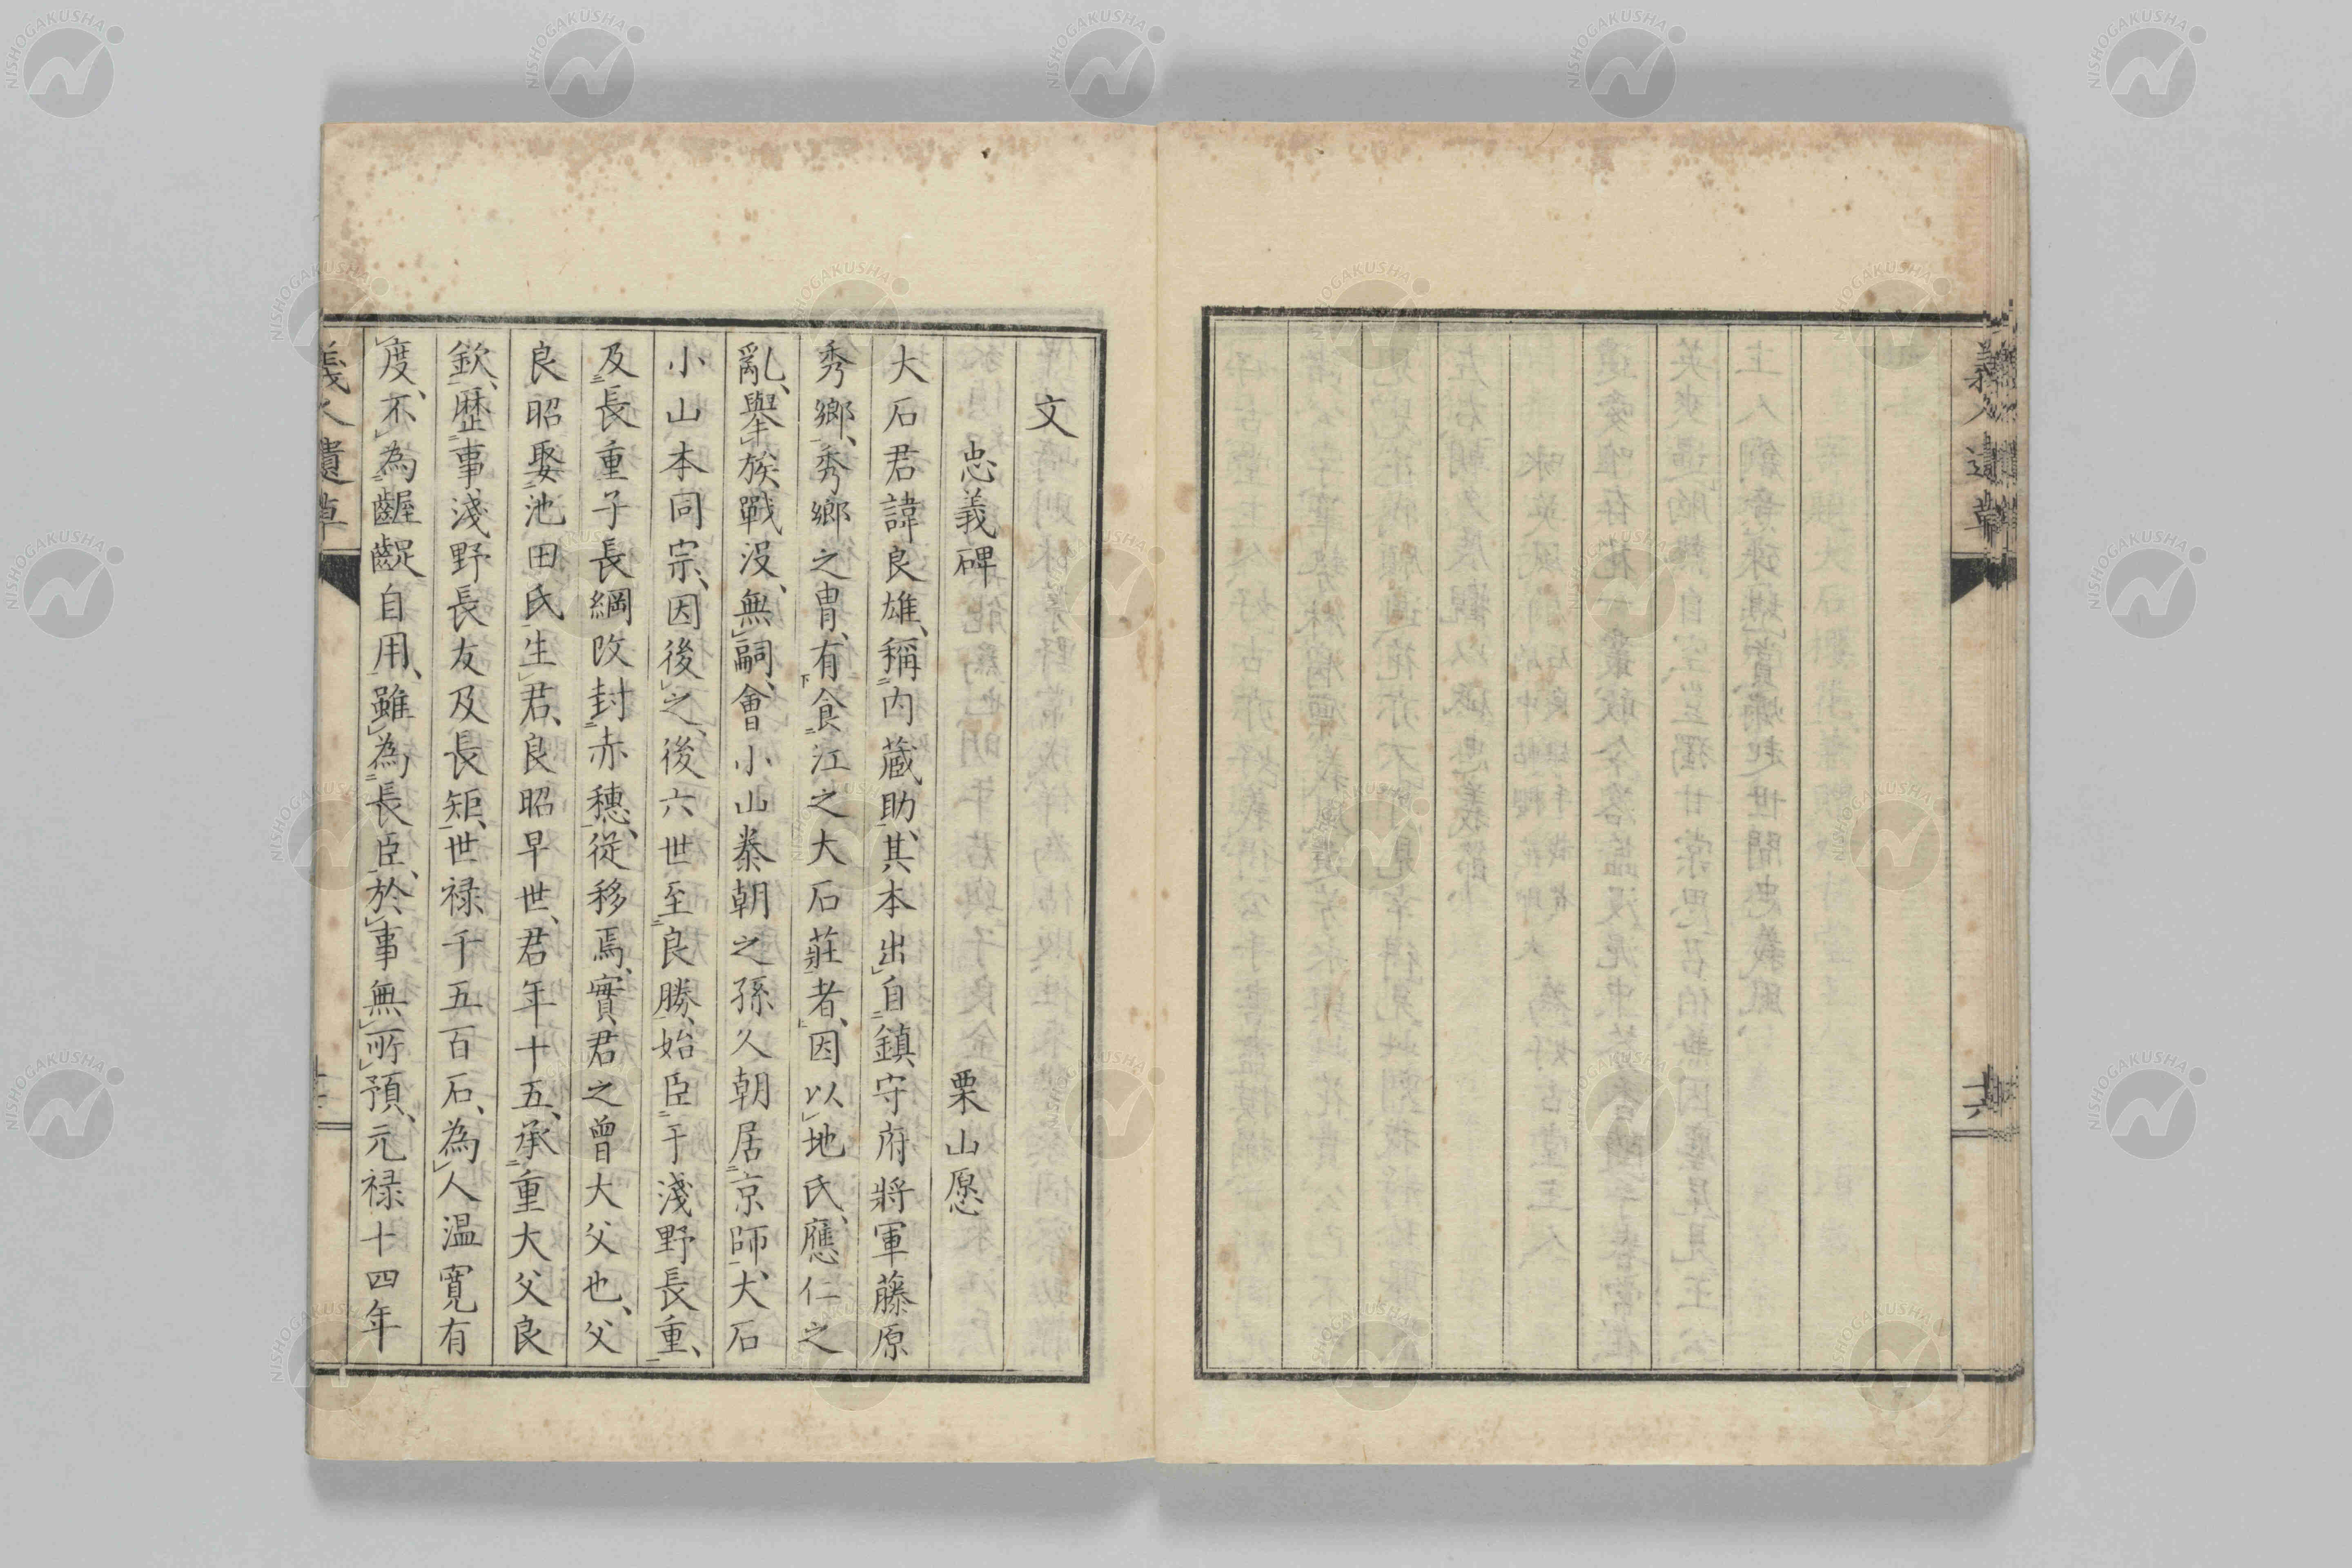 義人遺草
十六
文
忠義碑 栗山愿
大石君諱良雄、稱内蔵助、其本出自鎮守府將軍藤原
秀鄉、秀鄉之胄、有食江之大石莊者、因以地氏、應仁之
亂、擧族戰沒、無嗣、會小山泰朝之孫久朝居京師、大石
小山本同宗、因後之、後六世至良勝、始臣于淺野長重、
及長重子長綱改封赤穗、從移焉、實君之曾大父也、父
良昭娶池田氏生君、良昭早世、君年十五、承重大父良
欽、歷事淺野長友及長矩、世禄千五百石、為人温寛有
度、不為齷齪自用、雖為長臣、於事無所預、元禄十四年
義人遺草